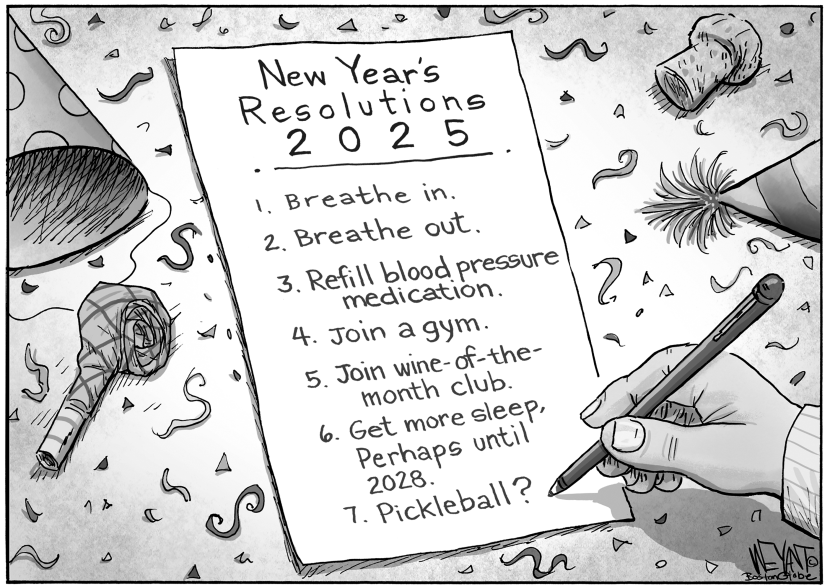 New Year's
Resolutions
2025
1. Breathe in.
2. Breathe out.
3. Refill blood pressure
medication.
4. Join a gym.
5. Join wine-of-the-
month club.
6. Get more sleep,
Perhaps until
2028.
7. Pickleball?
WEYANT ©
Boston Globe